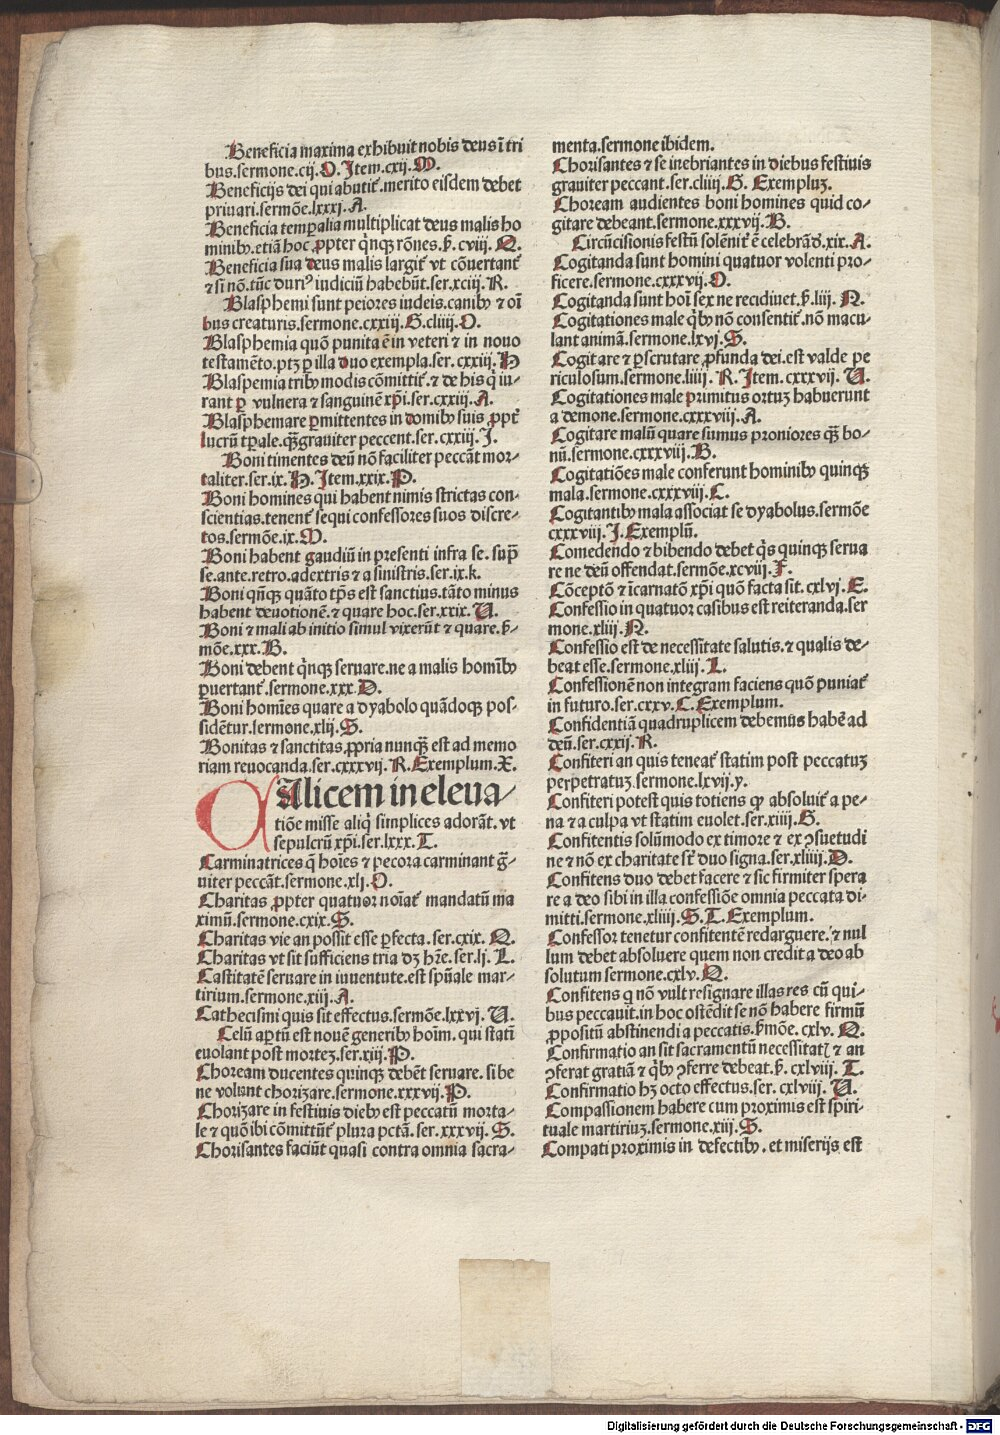 Beneficia maxima exhibuit nobis deus ĩ tri
bus.sermone.cij.O.Item.cxij.M.
Beneficijs dei qui abutit̃.merito eisdem debet
priuari.sermõe.lxxxj.A.
Beneficia temꝑalia multiplicat deus malis ho
minibꝰ.etiã hoc ꝓpter q̃nqꝫ rõnes.ẜ.cviij.Q.
Beneficia sua deus malis largit̃ vt cõuertant̃
⁊ si nõ.tũc duriꝰ iudiciũ habebũt.ser.xciij.R.
Blasphemi sunt peiores iudeis.canibꝰ ⁊ oĩ
bus creaturis.sermone.cxxiij.G.cliiij.O.
Blasphemia quõ punita ẽ in veteri ⁊ in nouo
testamẽto.ptꝫ ꝑ illa duo exempla.ser.cxxiij.H
Blaspemia tribꝰ modis cõmittit̃.⁊ de his q̃ iu-
rant ꝑ vulnera ⁊ sanguinẽ xp̃i.ser.cxxiij.A.
Blasphemare ꝑmittentes in domibꝰ suis ꝓpt̃
lucrũ tꝑale.qꝫ̃ grauiter peccent.ser.cxxiij.I.
Boni timentes deũ nõ faciliter peccãt mor-
taliter.ser.ix.H.Item.xxix.P.
Boni homines qui habent nimis strictas con-
scientias.tenent̃ sequi confessores suos discre-
tos.sermõe.ix.M.
Boni habent gaudiũ in presenti infra se.sup̃
se.ante.retro.adextris ⁊ a sinistris.ser.ix.k.
Boni qñqꝫ quãto tp̃s est sanctius.tãto minus
habent deuotionẽ.⁊ quare hoc.ser.xxix.U.
Boni ⁊ mali ab initio simul vixerũt ⁊ quare.ẜ-
mõe.xxx.B.
Boni debent q̃nqꝫ seruare.ne a malis homĩbꝰ
ꝑuertant̃.sermone.xxx.D.
Boni homĩes quare a dyabolo quãdoqꝫ pos-
sidẽtur.sermone.xlij.S.
Bonitas ⁊ sanctitas ꝓpria nunqꝫ̃ est ad memo
riam reuocanda.ser.cxxxvij.R.Exemplum.X.
CAlicem in eleua-
tiõe misse aliq̃ simplices adorãt.vt
sepulcrũ xp̃i.ser.lxxx.T.
Carminatrices q̃ hoĩes ⁊ pecora carminant g̃-
uiter peccãt.sermone.xlj.O.
Charitas ꝓpter quatuor noĩat̃ mandatũ ma
ximũ.sermone.cxix.S.
Charitas vie an possit esse ꝑfecta.ser.cxix.Q.
Charitas vt sit sufficiens tria dꝫ hr̃e.ser.lj.L.
Castitatẽ seruare in iuuentute.est sp̃uale mar-
tirium.sermone.xiij.A.
Cathecismi quis sit effectus.sermõe.lxxvj.U.
Celũ aꝑtũ est nouẽ generibꝰ hoĩm.qui statĩ
euolant post mortez.ser.xiij.P.
Choream ducentes quinqꝫ debẽt seruare.si be
ne volunt chorizare.sermone.xxxvij.P.
Chorizare in festiuis diebꝰ est peccatũ morta-
le ⁊ quõ ibi cõmittũt̃ plura pctã.ser.xxxvij.S.
Chorisantes faciũt quasi contra omnia sacra-
menta.sermone ibidem.
Chorisantes ⁊ se inebriantes in diebus festiuis
grauiter peccant.ser.cliiij.G.Exempluꝫ.
Choream audientes boni homines quid co-
gitare debeant.sermone.xxxvij.B.
Circũcisionis festũ solẽnit̃ ẽ celebrãd̾.xix.A.
Cogitanda sunt homini quatuor volenti pro-
ficere.sermone.cxxxvij.O.
Cogitanda sunt hoĩ sex ne recidiuet.ẜ.liij.N.
Cogitationes male q̃bꝰ nõ consentit̃.nõ macu-
lant animã.sermone.lxvj.S.
Cogitare ⁊ ꝑscrutare ꝓfunda dei.est valde pe
riculosum.sermone.liiij.R.Item.cxxxvij.U.
Cogitationes male primitus ortuꝫ habuerunt
a demone.sermone.cxxxviij.A.
Cogitare malũ quare sumus proniores qꝫ̃ bo-
nũ.sermone.cxxxviij.B.
Cogitatiões male conferunt hominibꝰ quinqꝫ
mala.sermone.cxxxviij.C.
Cogitantibꝰ mala associat se dyabolus.sermõe
cxxxviij.I.Exemplũ.
Comedendo ⁊ bibendo debet q̃s quinqꝫ serua
re ne deũ offendat.sermõe.xcviij.F.
Cõceptõ ⁊ ĩcarnatõ xp̃i quõ facta sit.cxlvj.E.
Confessio in quatuor casibus est reiteranda.ser
mone.xliij.N.
Confessio est de necessitate salutis.⁊ qualis de-
beat esse.sermone.xliij.L.
Confessionẽ non integram faciens quõ puniat̃
in futuro.ser.cxxv.C.Exemplum.
Confidentiã quadruplicem debemus habẽ ad
deũ.ser.cxxij.R.
Confiteri an quis teneat̃ statim post peccatuꝫ
perpetratuꝫ.sermone.lxvij.y.
Confiteri potest quis totiens qꝙ absoluit̃ a pe-
na ⁊ a culpa vt statim euolet.ser.xiiij.G.
Confitentis solũmodo ex timore ⁊ ex ꝯsuetudi
ne ⁊ nõ ex charitate st̃ duo signa.ser.xliiij.D.
Confitens duo debet facere ⁊ sic firmiter spera
re a deo sibi in illa confessiõe omnia peccata di-
mitti.sermone.xliiij.S.T.Exemplum.
Confessor tenetur confitentẽ redarguere.⁊ nul
lum debet absoluere quem non credit a deo ab
solutum sermone.cxlv.Q.
Confitens q nõ vult resignare illas res cũ qui-
bus peccauit.in hoc ostẽdit se nõ habere firmũ
ꝓpositũ abstinendi a peccatis.ẜmõe.cxlv.Q.
Confirmatio an sit sacramentũ necessitatꝭ ⁊ an
ꝯferat gratiã ⁊ q̃bꝰ ꝯferre debeat.ẜ.cxlviij.T.
Confirmatio hꝫ octo effectus.ser.cxlviij.U.
Compassionem habere cum proximis est spiri-
tuale martiriuꝫ.sermone.xiij.S.
Compati proximis in defectibꝰ.et miserijs est
Digitalisierung gefördert durch die Deutsche Forschungsgemeinschaft - DFG